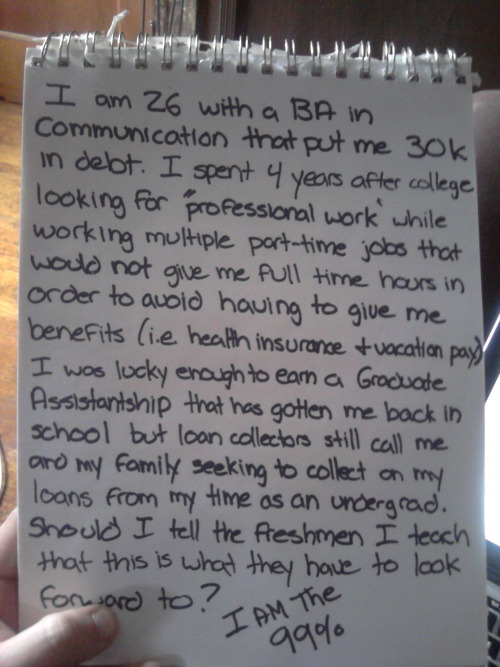 I am 26 with a BA in
Communication that put me 30k
in debt. I spent 4 years after college
looking for "professional work" while
working multiple part-time jobs that
would not give me full time hours in
order to avoid having to give me
benefits (i.e. health insurance + vacation pay)
I was lucky enough to earn a Graduate
Assistantship that has gotten me back in
school but loan collectors still call me
and my family seeking to collect on my
loans from my time as an undergrad.
Should I tell the freshmen I teach
that this is what they have to look
forward to?
I AM THE
99%